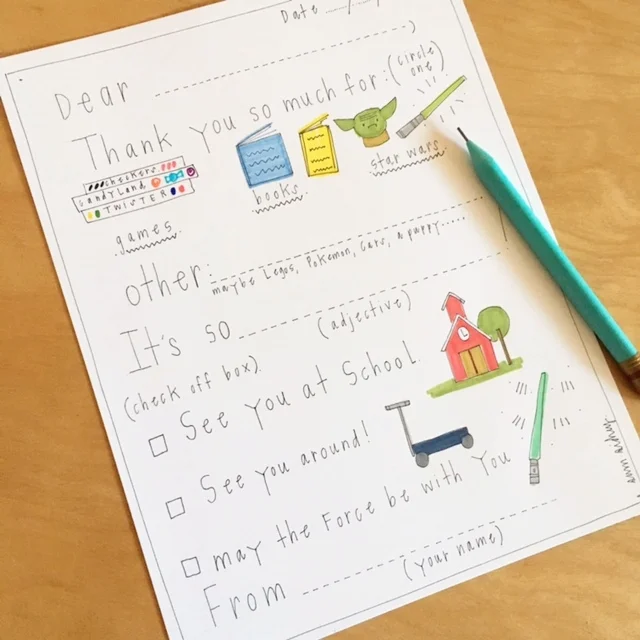 Date
Dear
Thank you so much for: (circle one)
checkers
CandyLand
TWISTER
games.
books.
star wars.
other:
maybe Legos, Pokemon, Cars, a puppy.....
It's so (adjective)
(check off box)
See you at School.
See you around!
may the Force be with You
From
(your name)